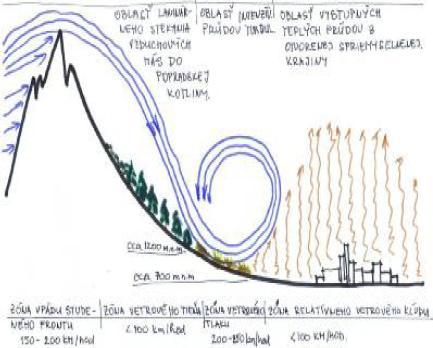 OBLASŤ LAMINÁR-
NEHO STEKANIA
VZDUCHOVÝCH
MÁS DO
POPRADSKEJ
KOTLINY.
OBLASŤ
PRÚDOV
OBLASŤ VÝSTUPNÝCH
TEPLÝCH PRÚDOV Z
OTVORENEJ SPRIEMYSELNENEJ
KRAJINY
cca 1200 m.n.m.
cca 700 m n m
ZÓNA VPÁDU STUDE-
NÉHO FRONTU
150 - 200 km/hod
ZÓNA VETROVÉHO TIEŇA
<100 km/hod
ZÓNA VETROVÉHO
TLAKU
200-250 km/hod
ZÓNA RELATÍVNEHO VETROVÉHO KĽUDU
<100 KM/HOD.